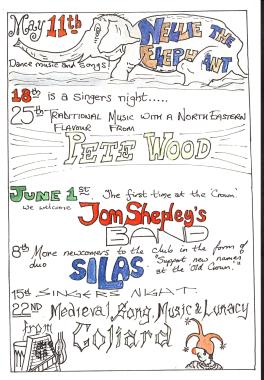 May 11th NELLIE THE
ELEPHANT
Dance music and songs!
18th is a singers night.....
25th TRADITIONAL MUSIC WITH A NORTH EASTERN
FLAVOUR FROM
PETE WOOD
JUNE 1ST The first time at the 'Crown'
we welcome Jom Shepley's
BAND
8th More newcomers to the club in the form of
duo SILAS "Support new names
at the 'Old Crown'."
15th SINGERS NIGHT.
22ND Medieval Song, Music & Lunacy
from Coliard